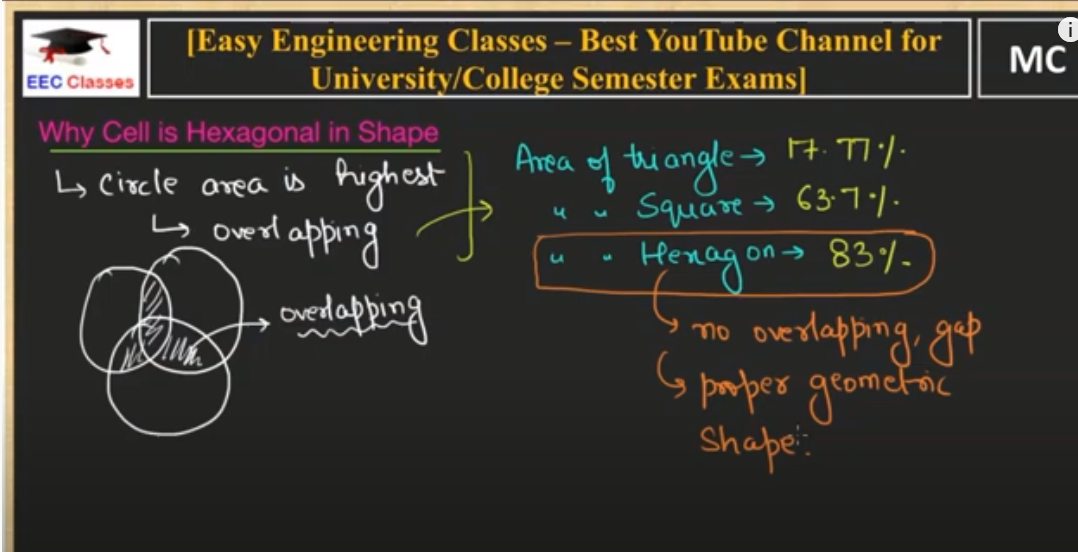 [Easy Engineering Classes – Best YouTube Channel for
University/College Semester Exams]
EEC Classes
MC
i
Why Cell is Hexagonal in Shape
↳ Circle area is highest
↳ overlapping
→ overlapping
Area of triangle → 17.77%.
" " Square → 63.7%.
" " Hexagon → 83%.
↳ no overlapping, gap
↳ proper geometric
Shape: